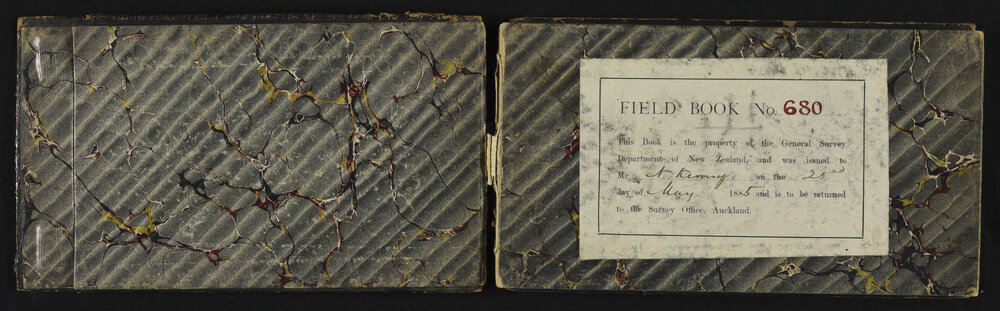 FIELD BOOK No. 680
This Book is the property of the General Survey
Department of New Zealand, and was issued to
Mr. N Kenny on the
day of May 1885 and is to be returned
to the Survey Office, Auckland.